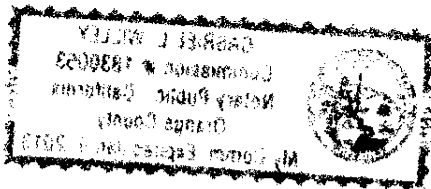 GABRIEL L. WILLEY
Commission #
Notary Public - California
Orange County
My Comm. Expires Jan